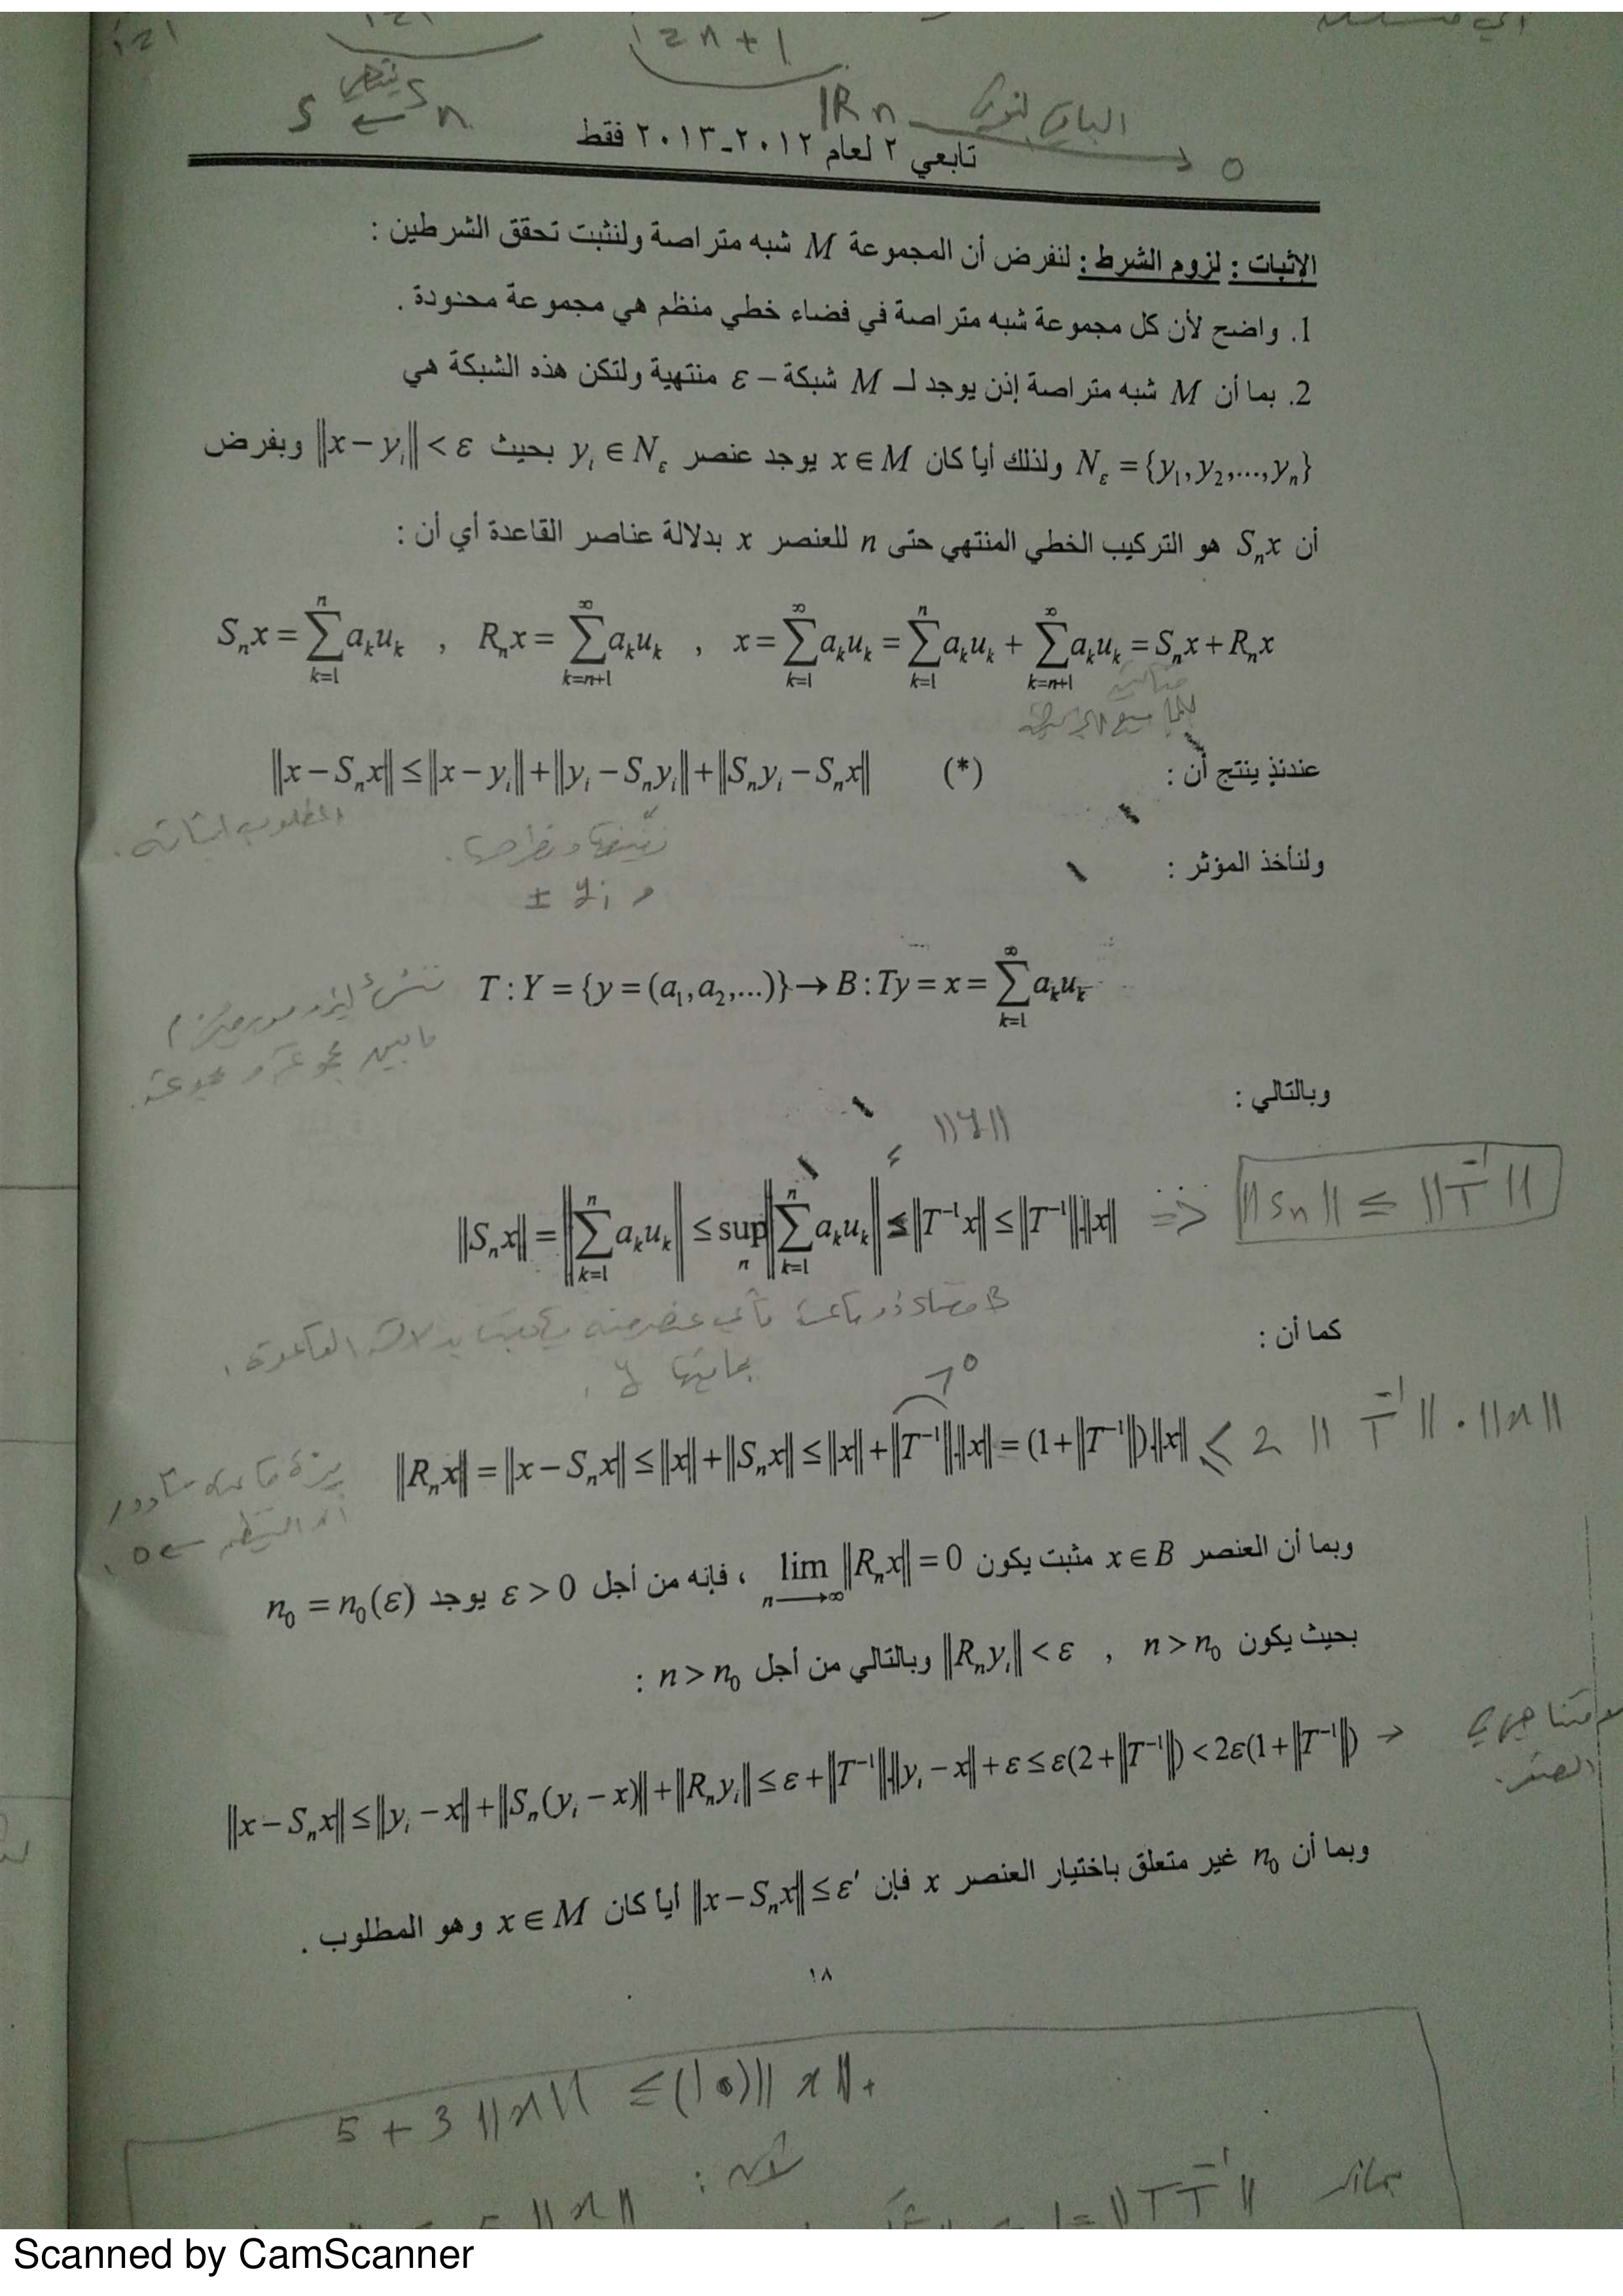 i=n+1
الباقي لنوني Rn → 0
S ← Sn
تابعي ٢ لعام ٢٠١٢-٢٠١٣ فقط
الإثبات : لزوم الشرط : لنفرض أن المجموعة M شبه متراصة ولنثبت تحقق الشرطين :
1. واضح لأن كل مجموعة شبه متراصة في فضاء خطي منظم هي مجموعة محدودة .
2. بما أن M شبه متراصة إذن يوجد لـ M شبكة – ε منتهية ولتكن هذه الشبكة هي
N_ε = {y₁, y₂,..., yₙ} ولذلك أيا كان x ∈ M يوجد عنصر yᵢ ∈ N_ε بحيث ‖x − yᵢ‖ < ε وبفرض
أن Sₙx هو التركيب الخطي المنتهي حتى n للعنصر x بدلالة عناصر القاعدة أي أن :
Sₙx = ∑_{k=1}^{n} aₖuₖ , Rₙx = ∑_{k=n+1}^{∞} aₖuₖ , x = ∑_{k=1}^{∞} aₖuₖ = ∑_{k=1}^{n} aₖuₖ + ∑_{k=n+1}^{∞} aₖuₖ = Sₙx + Rₙx
عندئذٍ ينتج أن : ‖x − Sₙx‖ ≤ ‖x − yᵢ‖ + ‖yᵢ − Sₙyᵢ‖ + ‖Sₙyᵢ − Sₙx‖ (*)
المطلوب اثباته .
نضيفها ونطرحها .
± yᵢ
ولنأخذ المؤثر :
T : Y = {y = (a₁, a₂,...)} → B : Ty = x = ∑_{k=1}^{∞} aₖuₖ
ما بين مجموعة ومجموعة .
وبالتالي :
‖y‖
‖Sₙx‖ = ‖∑_{k=1}^{n} aₖuₖ‖ ≤ sup_n ‖∑_{k=1}^{n} aₖuₖ‖ ≤ ‖T⁻¹x‖ ≤ ‖T⁻¹‖.‖x‖ ⇒ ‖Sn‖ ≤ ‖T⁻¹‖
B فضاء ذو قاعدة فأي عنصر منه يكتب بدلالة القاعدة .
كما أن :
‖Rₙx‖ = ‖x − Sₙx‖ ≤ ‖x‖ + ‖Sₙx‖ ≤ ‖x‖ + ‖T⁻¹‖.‖x‖ = (1 + ‖T⁻¹‖).‖x‖ ≤ 2 ‖T⁻¹‖ . ‖x‖
وبما أن العنصر x ∈ B مثبت يكون lim_{n→∞} ‖Rₙx‖ = 0 ، فإنه من أجل ε > 0 يوجد n₀ = n₀(ε)
بحيث يكون n > n₀ , ‖Rₙyᵢ‖ < ε وبالتالي من أجل n > n₀ :
‖x − Sₙx‖ ≤ ‖yᵢ − x‖ + ‖Sₙ(yᵢ − x)‖ + ‖Rₙyᵢ‖ ≤ ε + ‖T⁻¹‖.‖yᵢ − x‖ + ε ≤ ε(2 + ‖T⁻¹‖) < 2ε(1 + ‖T⁻¹‖) →
الصفر .
وبما أن n₀ غير متعلق باختيار العنصر x فإن ‖x − Sₙx‖ ≤ ε′ أيا كان x ∈ M وهو المطلوب .
١٨
5 + 3 ‖x‖ ≤ (10) ‖x‖
Scanned by CamScanner